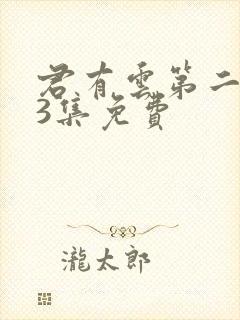 君有雲第二
3集免費
瀧太郎